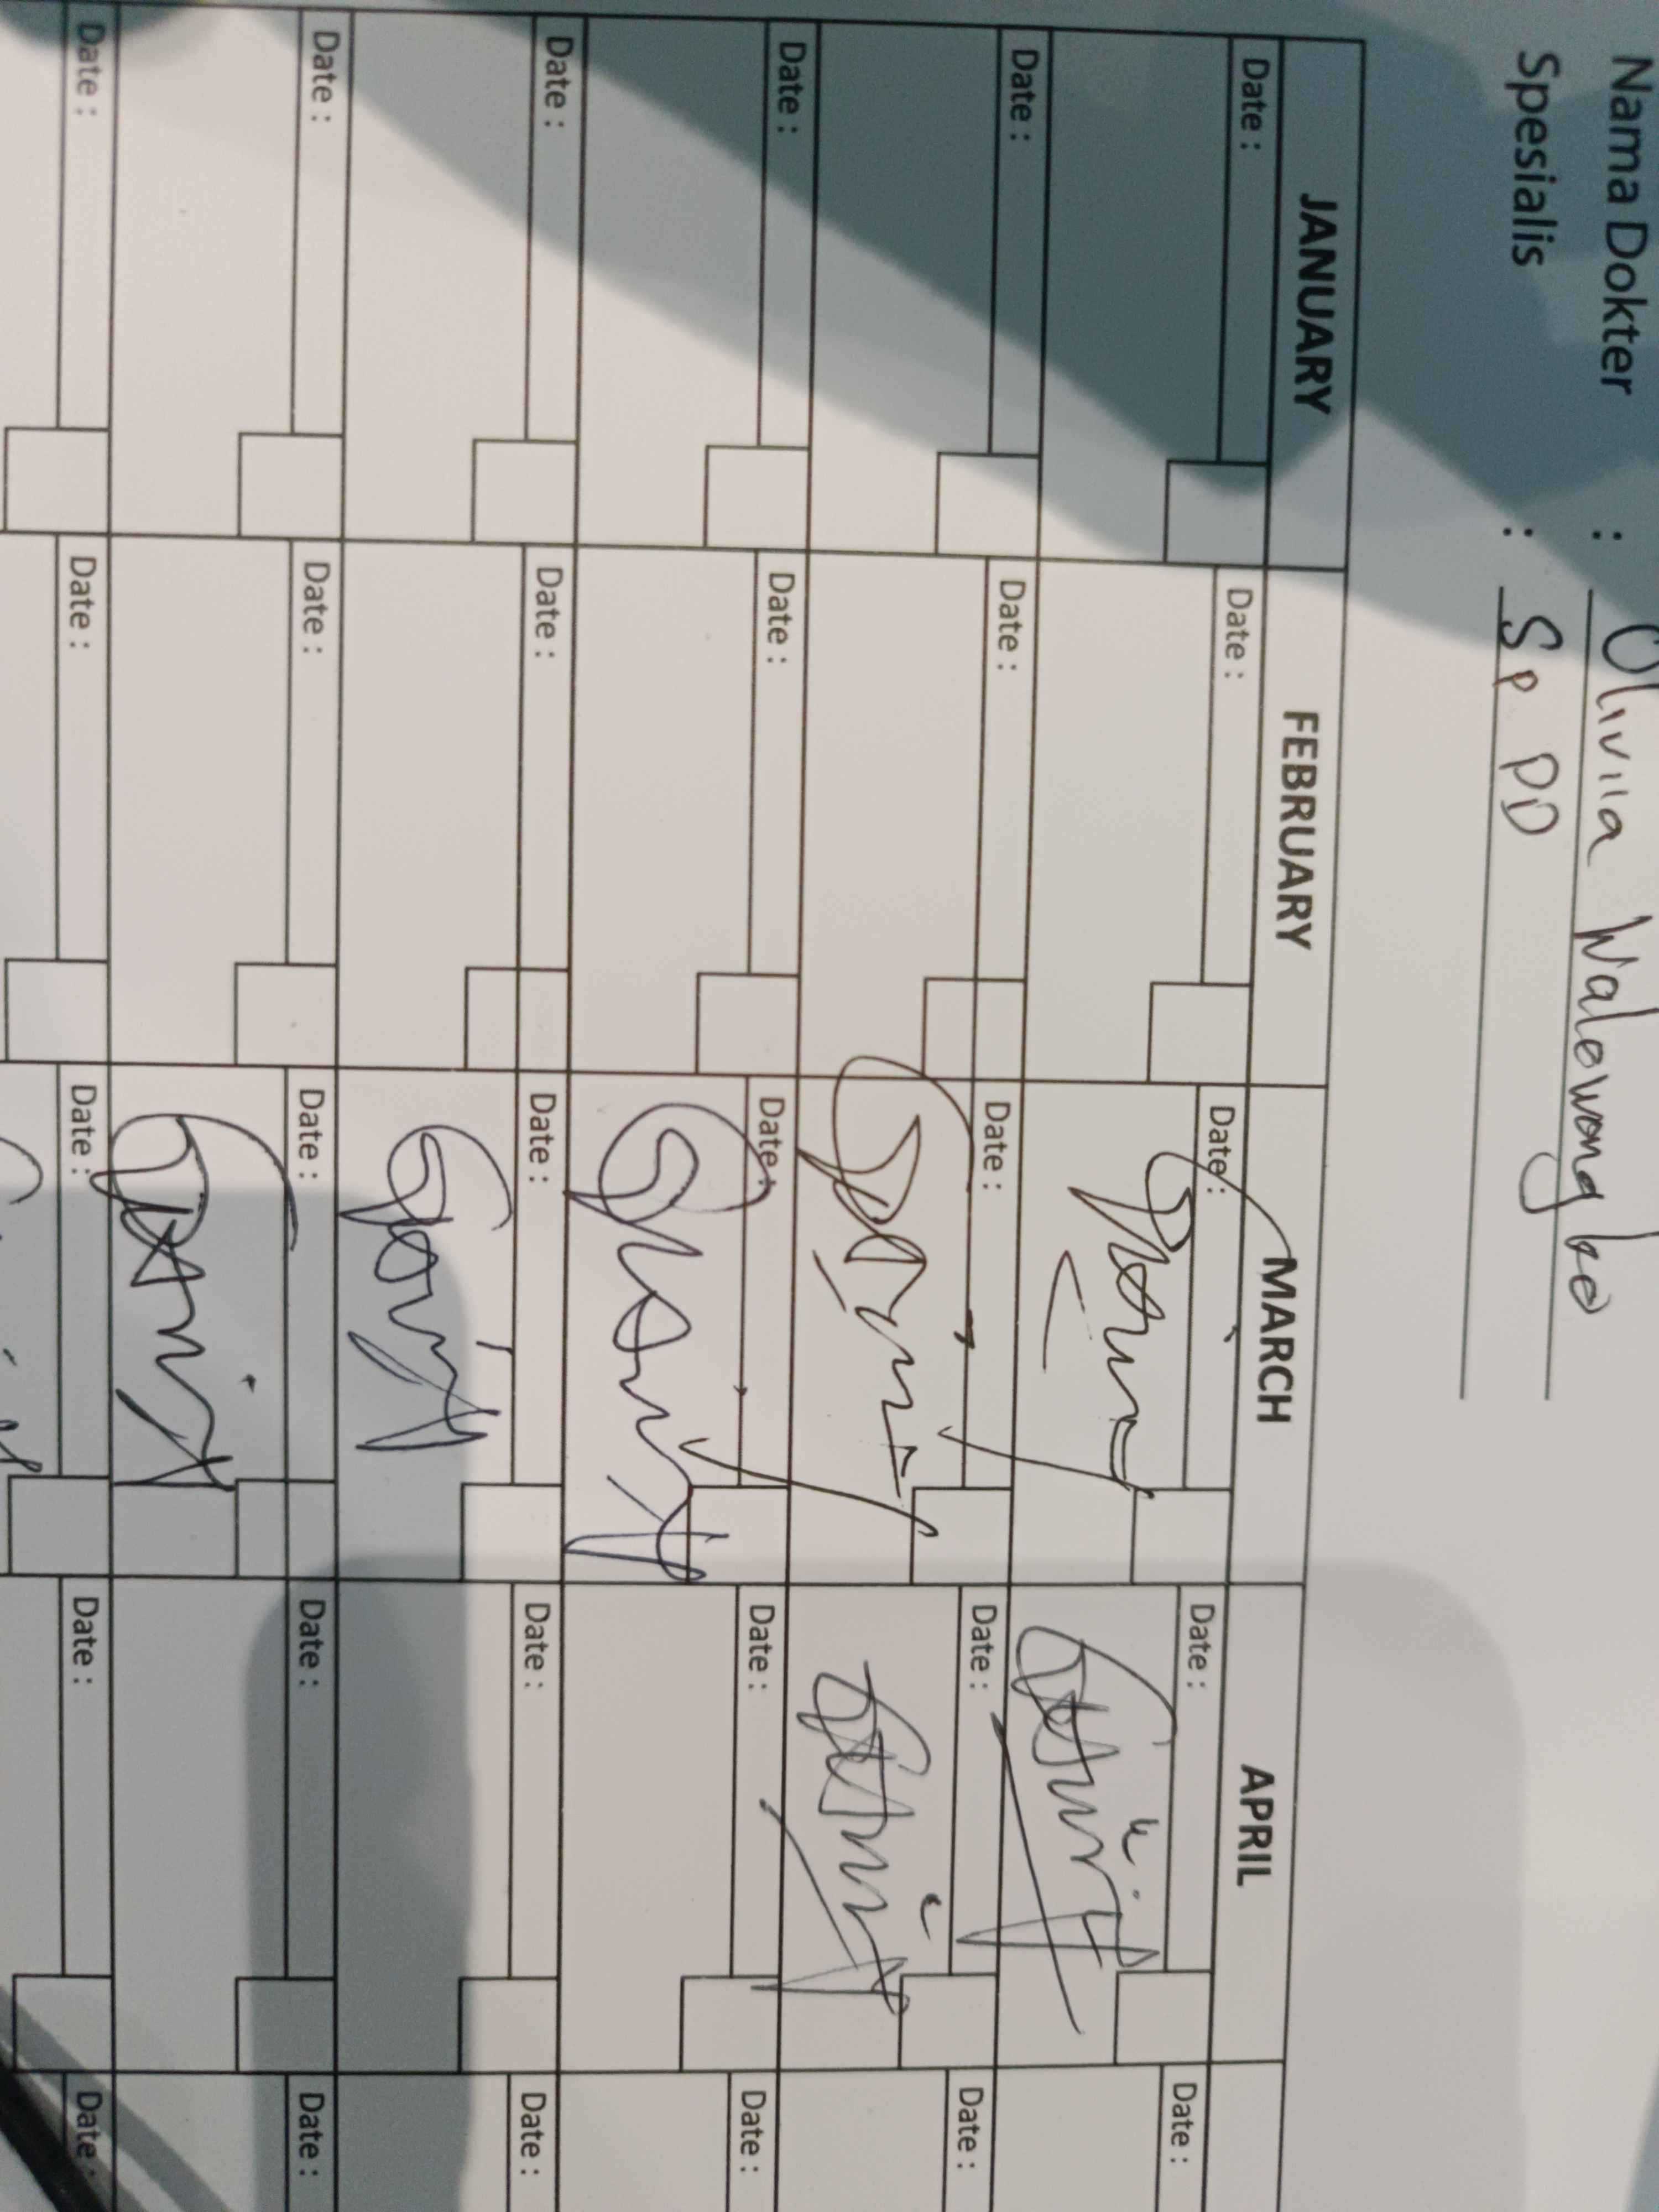 Nama Dokter : Olivia Walewangko
Spesialis : Sp PD
JANUARY FEBRUARY MARCH APRIL
Date : Date : Date : Date : Date :
Date : Date : Date : Date : Date :
Date : Date : Date : Date : Date :
Date : Date : Date : Date : Date :
Date : Date : Date : Date : Date :
Date : Date : Date : Date : Date :